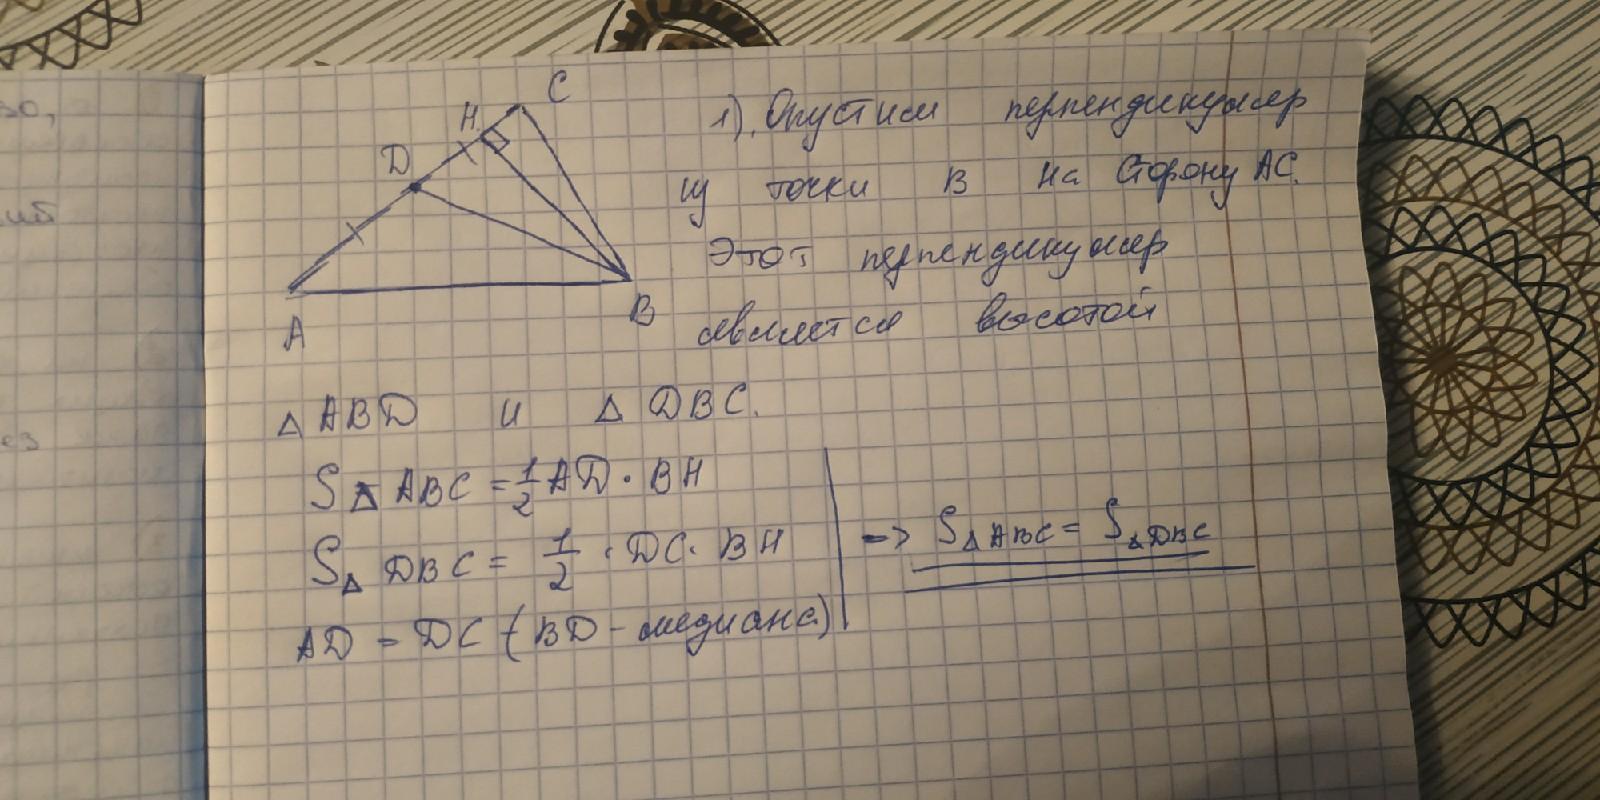 зо,
C
H
D
A
B
1). Опустим перпендикуляр
из точки B на сторону AC.
Этот перпендикуляр
является высотой
△ ABD и △ DBC.
S△ ABC = 1/2 AD · BH
S△ DBC = 1/2 · DC · BH
AD = DC (BD - медиана)
=> S△ ABC = S△ DBC